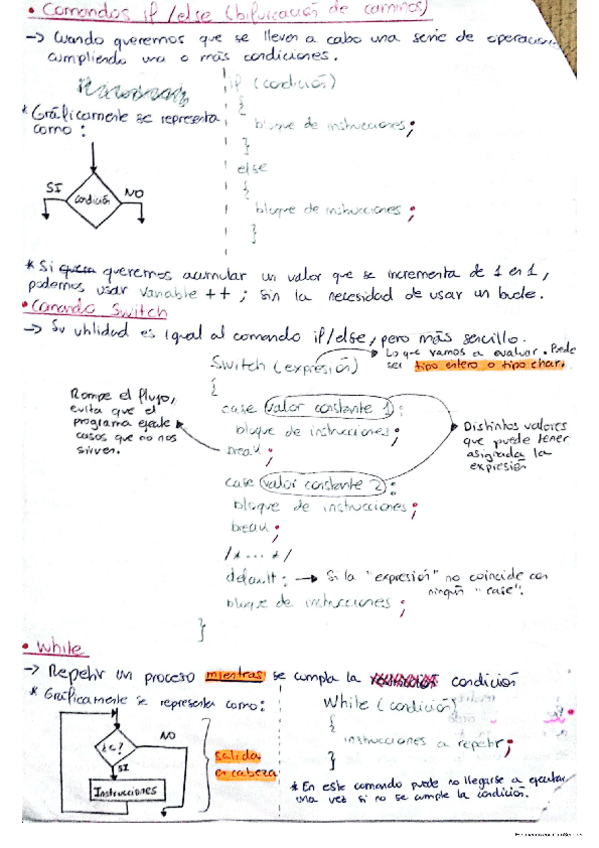 • Comandos if /else (bifurcación de caminos)
-> Cuando queremos que se lleven a cabo una serie de operacion
cumpliendo una o más condiciones.
if (condición)
{
bloque de instrucciones;
}
else
{
bloque de instrucciones;
}
* Gráficamente se representa
como:
SI
condición
NO
* Si queremos acumular un valor que se incrementa de 1 en 1,
podemos usar variable ++ ; sin la necesidad de usar un bucle.
• Comando Switch
-> Su utilidad es igual al comando if/else, pero más sencillo.
Switch (expresión)
Lo que vamos a evaluar. Puede
ser tipo entero o tipo char.
{
case valor constante 1:
bloque de instrucciones;
break;
Rompe el flujo,
evita que el
programa ejecute
casos que no nos
sirven.
Distintos valores
que puede tener
asignada la
expresión
case valor constante 2:
bloque de instrucciones;
break;
/* ... */
default: -> Si la "expresión" no coincide con
ningún "case".
bloque de instrucciones;
}
• While
-> Repetir un proceso mientras se cumpla la condición
* Gráficamente se representa como:
¿c?
NO
SI
Instrucciones
salida
en cabeza
While (condición)
{
instrucciones a repetir;
}
* En este comando puede no llegarse a ejecutar
una vez si no se cumple la condición.